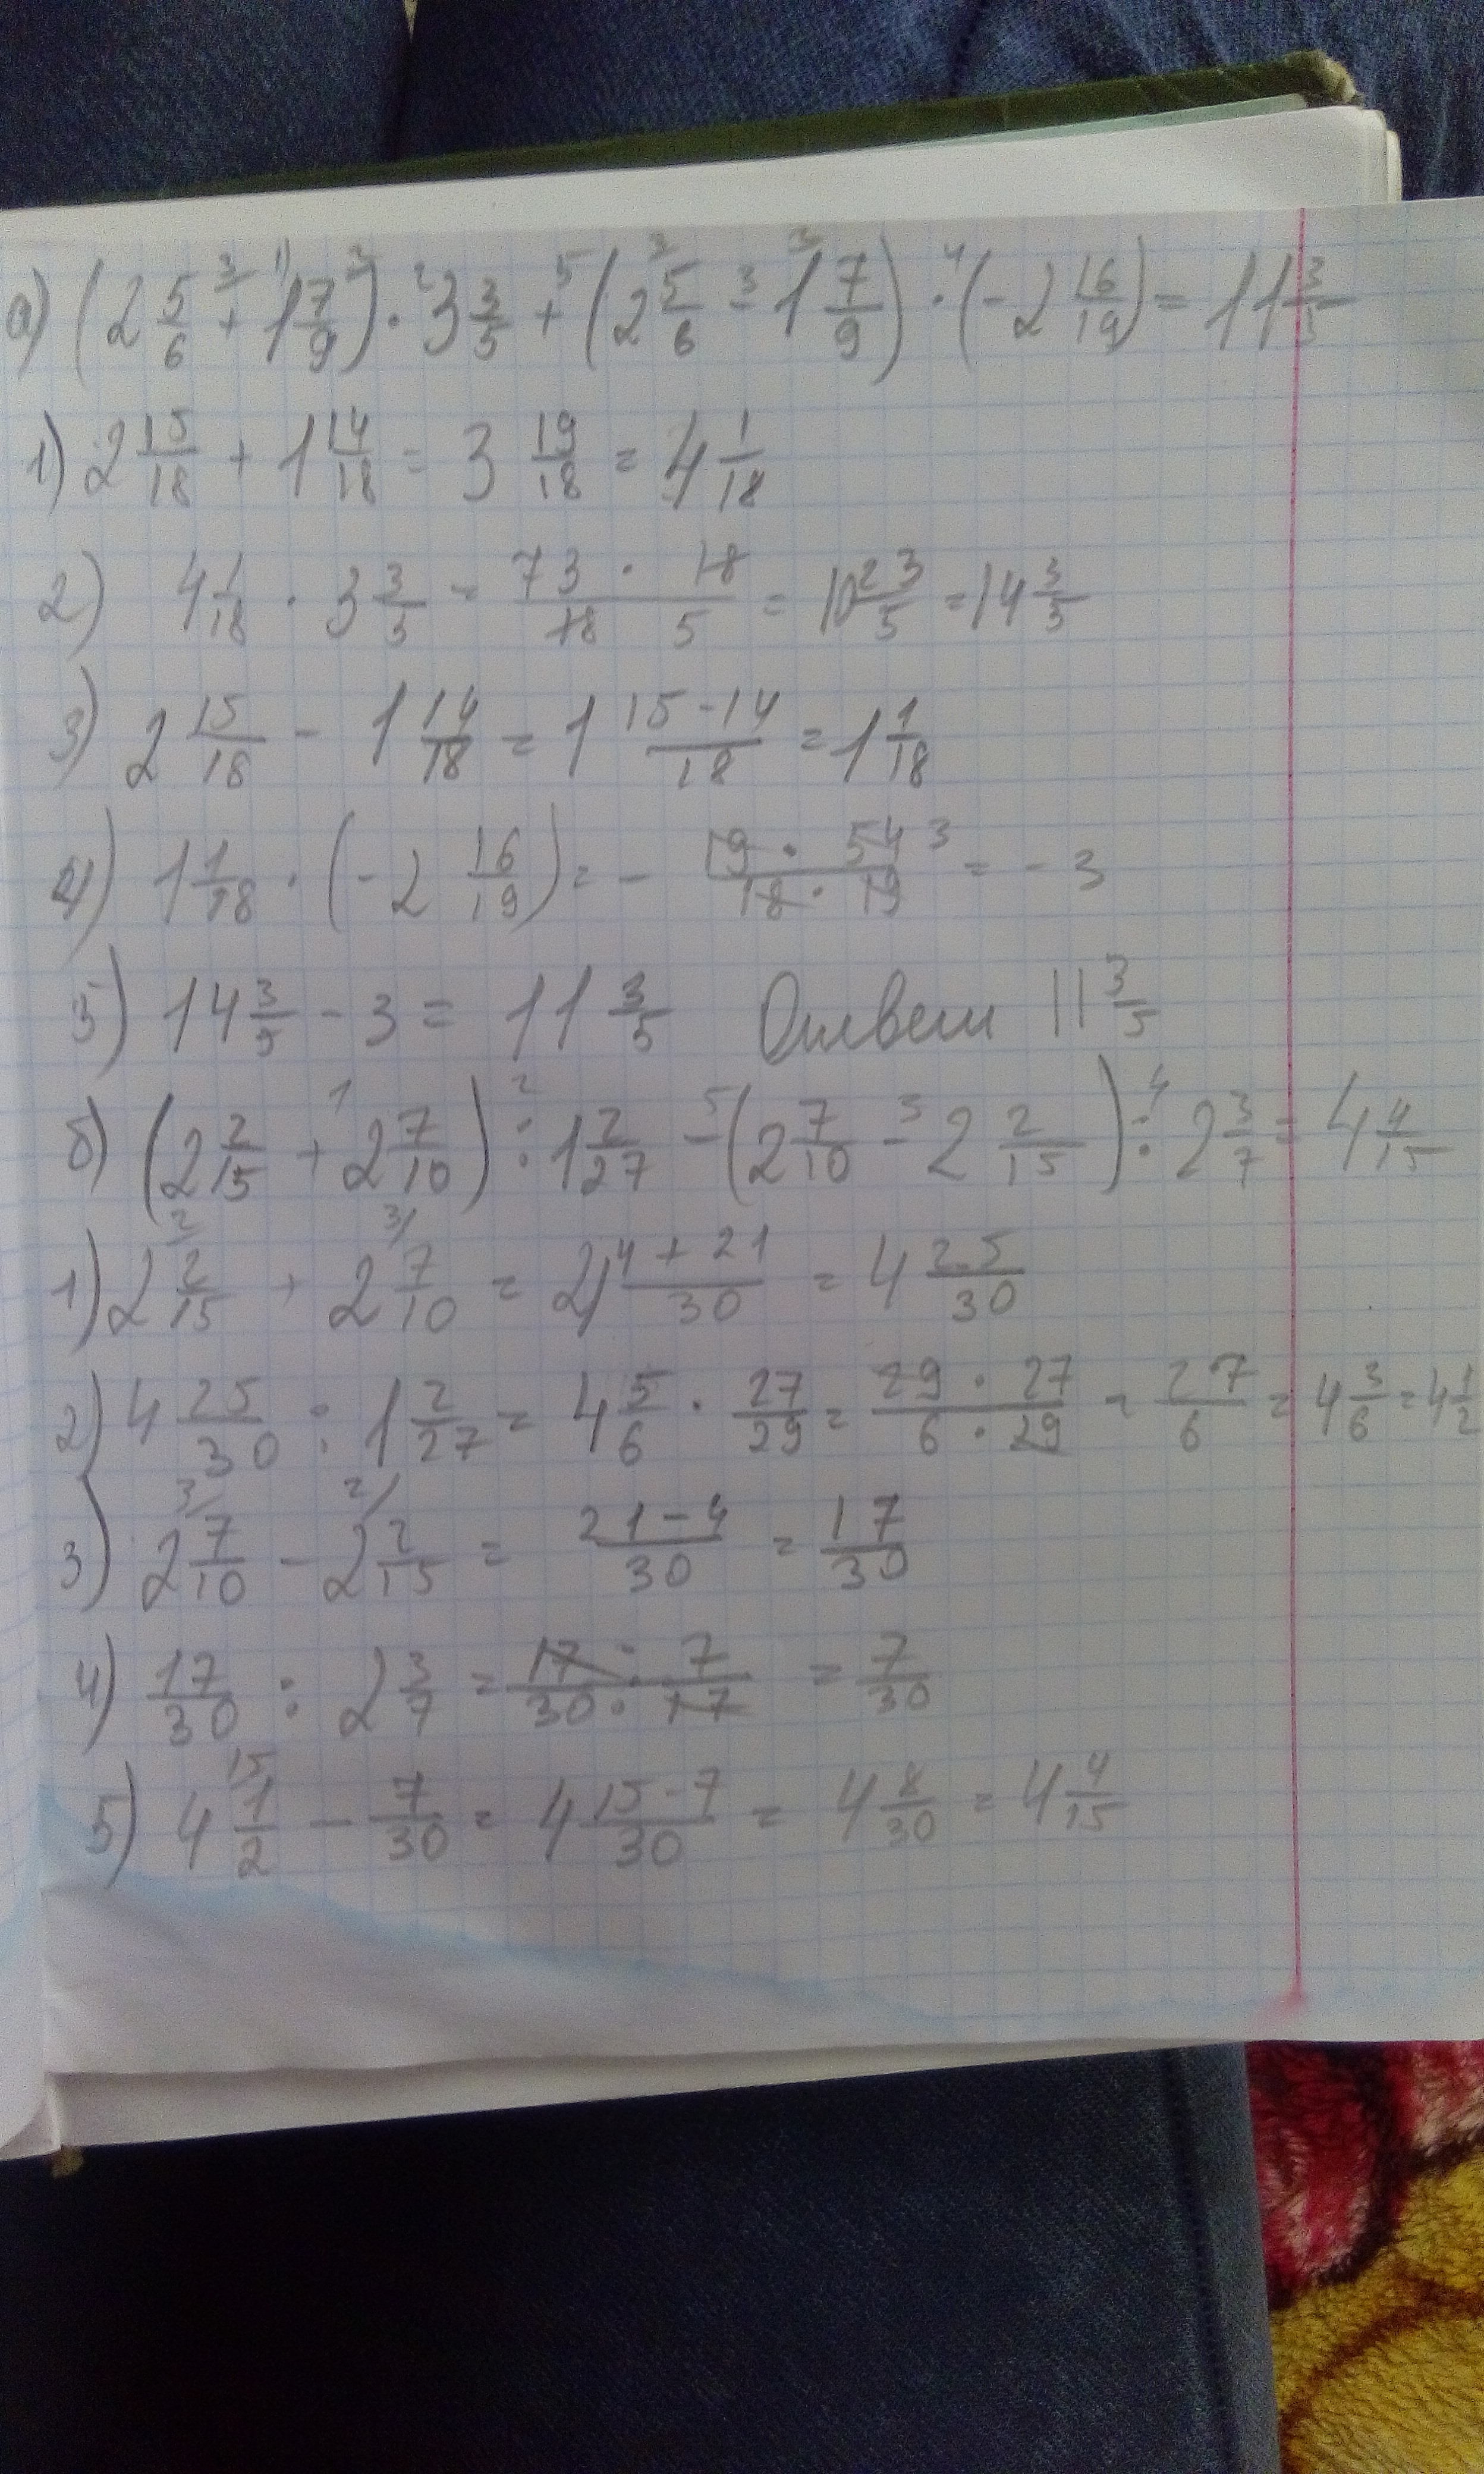 а) (2 5/6 + 1 7/9) · 3 3/5 + (2 5/6 - 1 7/9) · (-2 16/19) = 11 3/5
1) 2 15/18 + 1 14/18 = 3 19/18 = 4 1/18
2) 4 1/18 · 3 3/5 = 73 · 18 / 18 5 = 10 23/5 = 14 3/5
3) 2 15/18 - 1 14/18 = 1 15-14/18 = 1 1/18
4) 1 1/18 · (-2 16/19) = - 19 · 54 3 / 18 · 19 = - 3
5) 14 3/5 - 3 = 11 3/5 Ответ 11 3/5
б) (2 2/15 + 2 7/10) : 1 2/27 - (2 7/10 - 2 2/15) : 2 3/7 = 4 4/15
1) 2 2/15 + 2 7/10 = 4 4+21/30 = 4 25/30
2) 4 25/30 : 1 2/27 = 4 5/6 · 27/29 = 29 · 27 / 6 · 29 = 27/6 = 4 3/6 = 4 1/2
3) 2 7/10 - 2 2/15 = 21-4/30 = 17/30
4) 17/30 : 2 3/7 = 17 · 7 / 30 · 17 = 7/30
5) 4 1/2 - 7/30 = 4 15-7/30 = 4 8/30 = 4 4/15